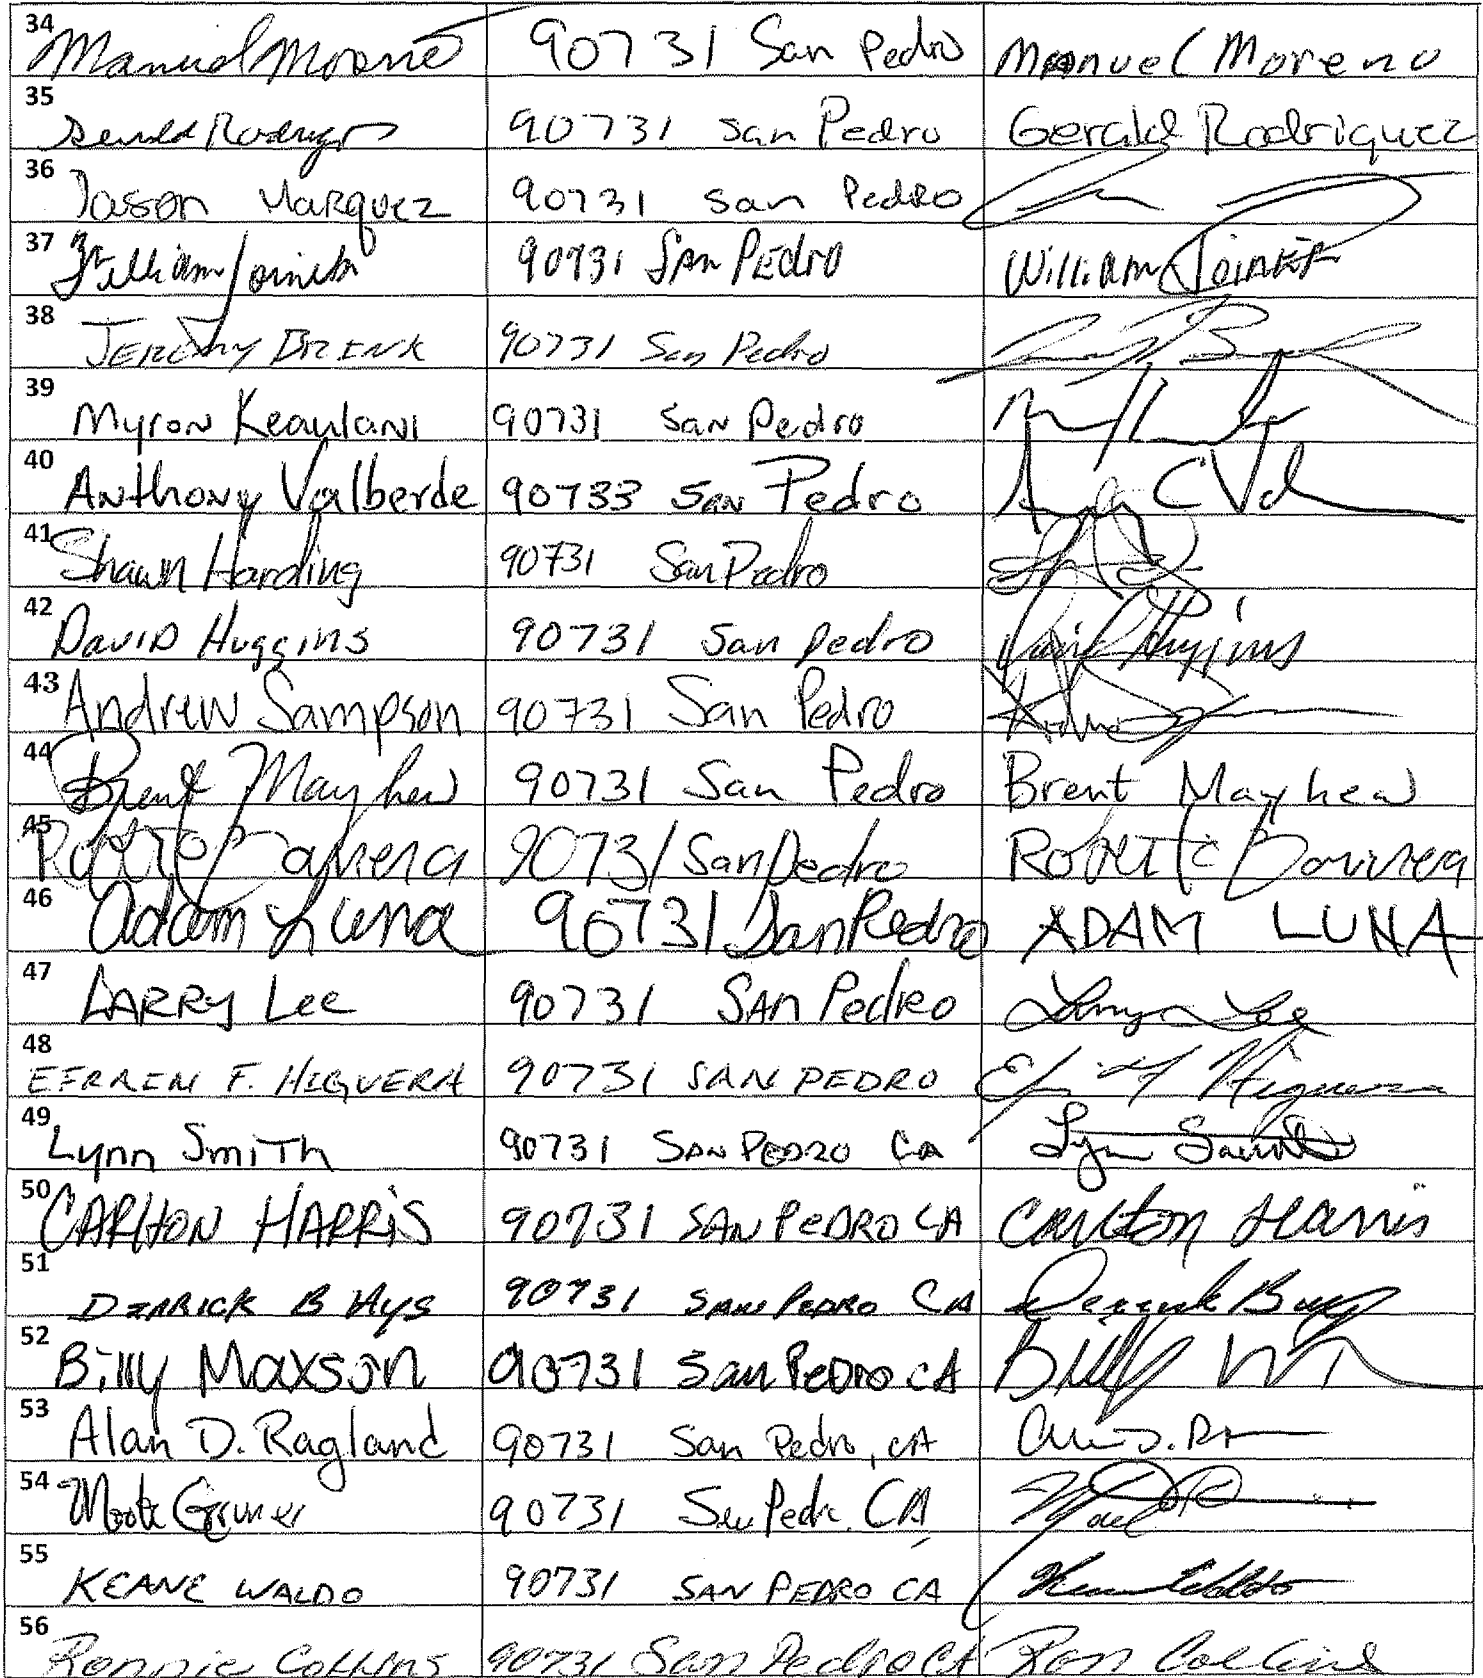 34 Manuel Moreno 90731 San Pedro Manuel Moreno
35 Gerald Rodriguez 90731 San Pedro Gerald Rodriquez
36 Jason Marquez 90731 San Pedro
37 William Joiner 90731 San Pedro William Joiner
38 Jeremy Brink 90731 San Pedro
39 Myron Keaulani 90731 San Pedro
40 Anthony Valberde 90733 San Pedro
41 Shawn Harding 90731 San Pedro
42 David Huggins 90731 San Pedro David Huggins
43 Andrew Sampson 90731 San Pedro
44 Brent Mayhew 90731 San Pedro Brent Mayhew
45 90731 San Pedro
46 Adam Luna 90731 San Pedro ADAM LUNA
47 LARRY Lee 90731 SAN PedRO Lee
48 EFRREN F. HIGUERA 90731 SAN PEDRO Higuera
49 Lynn Smith 90731 SAN PEDRO Ca Lynn
50 CARLTON HARRiS 90731 SAN PeDRO CA Carlton Harris
51 DERRICK B Hys 90731 SAN PEDRO CA Derrick
52 Billy Maxson 90731 San PeDRO CA Billy
53 Alan D. Ragland 90731 San Pedro, CA
54 90731 CA
55 KEANE WALDO 90731 SAN PEDRO CA
56 Ronnie Collins 90731 San Pedro CA Ron Collins